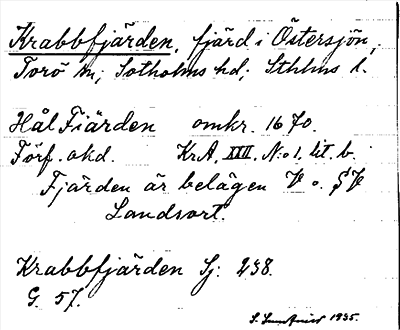 Krabbfjärden, fjärd i Östersjön,
Torö sn; Sotholms hd; Sthlms l.
Hål Fiärden omkr. 1670.
Förf. okd. KrA, XXII, N:o 1, lit. b.
Fjärden är belägen V o. SV
Landsort.
Krabbfjärden Sj: 238.
G. 57.
1935.